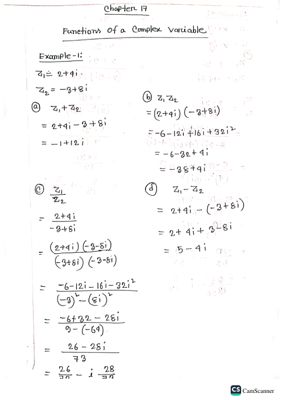 Chapter 17
Functions of a Complex Variable
Example-1:
Z₁ = 2+4i
Z₂ = -3+8i
(a) Z₁+Z₂
= 2+4i-3+8i
= -1+12i
(b) Z₁Z₂
= (2+4i)(-3+8i)
= -6-12i+16i+32i²
= -6-32+4i
= -38+4i
(c) Z₁/Z₂
= (2+4i)/(-3+8i)
= (2+4i)(-3-8i)/(-3+8i)(-3-8i)
= (-6-12i-16i-32i²)/((-3)²-(8i)²)
= (-6+32-28i)/(9-(-64))
= (26-28i)/73
= 26/73 - i 28/73
(d) Z₁-Z₂
= 2+4i-(-3+8i)
= 2+4i+3-8i
= 5-4i
CS CamScanner